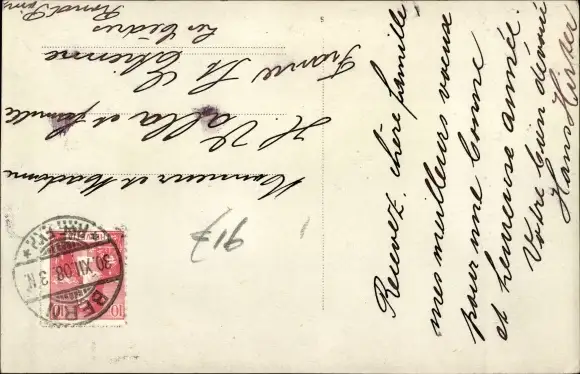 Recevez, chère famille
mes meilleurs voeux
pour une bonne
et heureuse année.
Votre bien dévoué
Hans
Monsieur et Madame
H. Valla et famille
France St Etienne
Les Cèdres
917
BERN
30.XII.08. 3
10